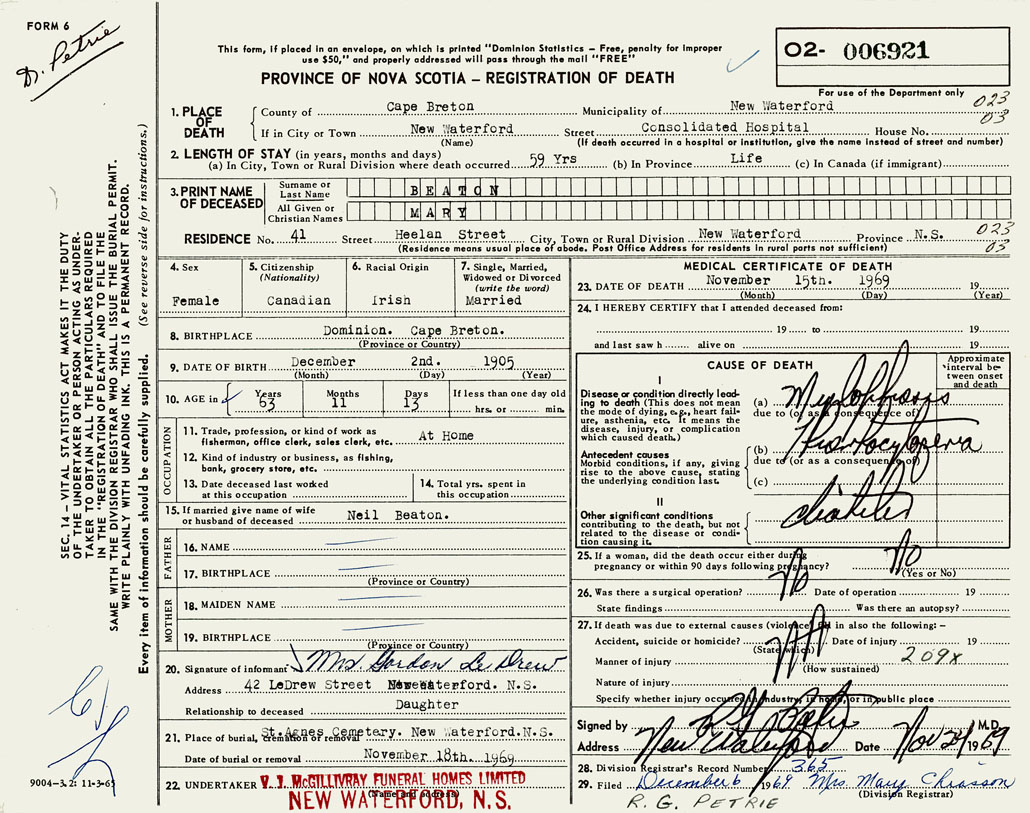 FORM 6
D. Petrie
This form, if placed in an envelope, on which is printed "Dominion Statistics – Free, penalty for improper
use $50," and properly addressed will pass through the mail "FREE"
PROVINCE OF NOVA SCOTIA – REGISTRATION OF DEATH
02- 006921
For use of the Department only
023
03
1. PLACE OF DEATH
County of Cape Breton Municipality of New Waterford
If in City or Town New Waterford Street Consolidated Hospital House No.
(Name) (If death occurred in a hospital or institution, give the name instead of street and number)
2. LENGTH OF STAY (in years, months and days)
(a) In City, Town or Rural Division where death occurred 59 Yrs (b) In Province Life (c) In Canada (if immigrant)
3. PRINT NAME OF DECEASED
Surname or Last Name BEATON
All Given or Christian Names MARY
RESIDENCE No. 41 Street Heelan Street City, Town or Rural Division New Waterford Province N.S.
(Residence means usual place of abode. Post Office Address for residents in rural parts not sufficient)
023
03
4. Sex
Female
5. Citizenship
(Nationality)
Canadian
6. Racial Origin
Irish
7. Single, Married,
Widowed or Divorced
(write the word)
Married
8. BIRTHPLACE Dominion. Cape Breton.
(Province or Country)
9. DATE OF BIRTH December 2nd. 1905
(Month) (Day) (Year)
10. AGE in
Years Months Days If less than one day old
63 11 13 hrs. or min.
OCCUPATION
11. Trade, profession, or kind of work as
fisherman, office clerk, sales clerk, etc. At Home
12. Kind of industry or business, as fishing,
bank, grocery store, etc.
13. Date deceased last worked
at this occupation
14. Total yrs. spent in
this occupation
15. If married give name of wife
or husband of deceased Neil Beaton.
FATHER
16. NAME
17. BIRTHPLACE
(Province or Country)
MOTHER
18. MAIDEN NAME
19. BIRTHPLACE
(Province or Country)
20. Signature of informant Mrs Gordon Le Drew
Address 42 LeDrew Street New Waterford. N.S.
Relationship to deceased Daughter
21. Place of burial, cremation or removal St. Agnes Cemetary. New Waterford.N.S.
Date of burial or removal November 18th. 1969
22. UNDERTAKER V. J. McGILLIVRAY FUNERAL HOMES LIMITED
(Name and address)
NEW WATERFORD, N.S.
MEDICAL CERTIFICATE OF DEATH
23. DATE OF DEATH November 15th. 1969 19
(Month) (Day) (Year)
24. I HEREBY CERTIFY that I attended deceased from:
19 to 19
and last saw h alive on 19
CAUSE OF DEATH
Approximate
interval be-
tween onset
and death
I
Disease or condition directly lead-
ing to death (This does not mean
the mode of dying, e.g., heart fail-
ure, asthenia, etc. It means the
disease, injury, or complication
which caused death.)
(a)
due to (or as a consequence of)
Antecedent causes
Morbid conditions, if any, giving
rise to the above cause, stating
the underlying condition last.
(b)
due to (or as a consequence of)
(c)
II
Other significant conditions
contributing to the death, but not
related to the disease or condi-
tion causing it.
25. If a woman, did the death occur either during
pregnancy or within 90 days following pregnancy? No
(Yes or No)
26. Was there a surgical operation? No Date of operation 19
State findings Was there an autopsy?
27. If death was due to external causes (violence) fill in also the following: –
Accident, suicide or homicide? Date of injury 19
(State which)
Manner of injury 209X
(How sustained)
Nature of injury
Specify whether injury occurred in industry, in home, or in public place
Signed by M.D.
Address New Waterford Date Nov 24 1969
28. Division Registrar's Record Number 365
29. Filed December 6 1969 Mrs Mary Chiasson
(Division Registrar)
R. G. PETRIE
SEC. 14 – VITAL STATISTICS ACT MAKES IT THE DUTY
OF THE UNDERTAKER OR PERSON ACTING AS UNDER-
TAKER TO OBTAIN ALL THE PARTICULARS REQUIRED
IN THE "REGISTRATION OF DEATH" AND TO FILE THE
SAME WITH THE DIVISION REGISTRAR WHO SHALL ISSUE THE BURIAL PERMIT.
WRITE PLAINLY WITH UNFADING INK. THIS IS A PERMANENT RECORD.
Every item of information should be carefully supplied. (See reverse side for instructions.)
9004–3.2: 11-3-65